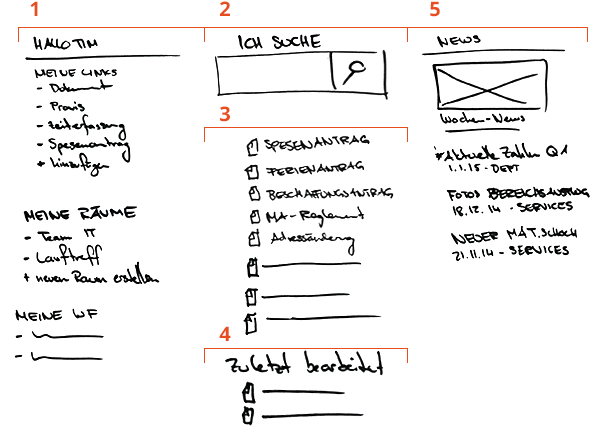 1
HALLO TIM
MEINE LINKS
- Dokument
- Praxis
- Zeiterfassung
- Spesenantrag
+ hinzufügen
MEINE RÄUME
- Team IT
- Lauftreff
+ neuen Raum erstellen
MEINE WF
2
ICH SUCHE
3
SPESENANTRAG
FERIENANTRAG
BESCHAFFUNGSANTRAG
MA-Reglement
Adressänderung
4
Zuletzt bearbeitet
5
NEWS
Wochen-News
*Aktuelle Zahlen Q1
1.1.15 - DEPT
FOTOS BEREICHSAUSFLUG
18.12.14 - SERVICES
NEUER MAT.
21.11.14 - SERVICES